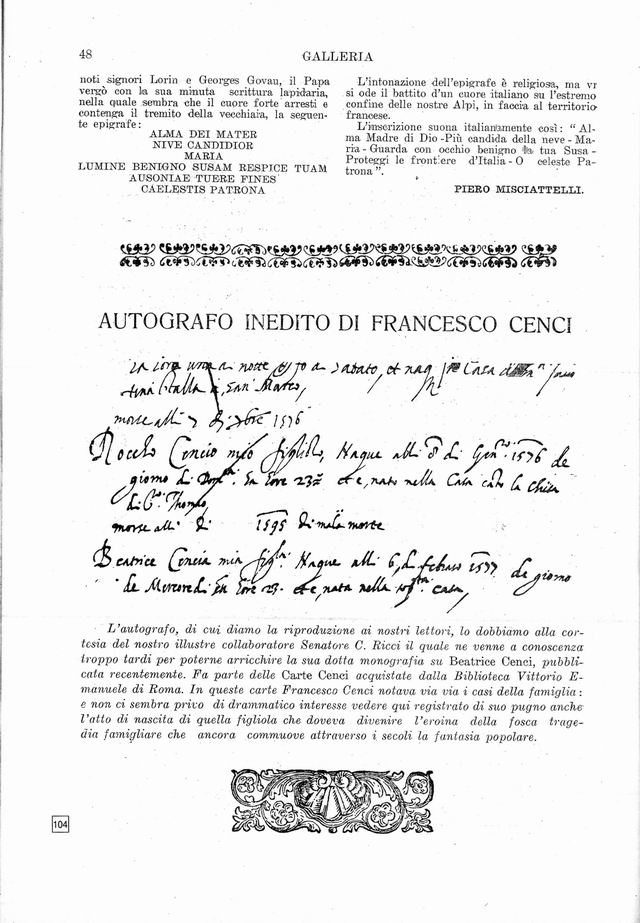 48
GALLERIA
noti signori Lorin e Georges Govau, il Papa
vergò con la sua minuta scrittura lapidaria,
nella quale sembra che il cuore forte arresti e
contenga il tremito della vecchiaia, la seguen-
te epigrafe:
ALMA DEI MATER
NIVE CANDIDIOR
MARIA
LUMINE BENIGNO SUSAM RESPICE TUAM
AUSONIAE TUERE FINES
CAELESTIS PATRONA
L'intonazione dell'epigrafe è religiosa, ma vi
si ode il battito d'un cuore italiano su l'estremo
confine delle nostre Alpi, in faccia al territorio
francese.
L'inscrizione suona italianamente così: " Al-
ma Madre di Dio - Più candida della neve - Ma-
ria - Guarda con occhio benigno la tua Susa -
Proteggi le frontiere d'Italia - O celeste Pa-
trona ".
PIERO MISCIATTELLI.
AUTOGRAFO INEDITO DI FRANCESCO CENCI
una notte Sabato, et Casa
San Marco,
morse alli 7 di 1576
Roccho Cencio mio figliolo, Naque alli 8 di 1576 de
giorno di En hore 23 et e, nato nella Casa la
di Thomao,
morse alli di 1595 di mala morte
Beatrice Cencia mia Naque alli 6, di febraro 1577 de giorno
de Mercoredi En hore 23. et e, nata nella casa,
L'autografo, di cui diamo la riproduzione ai nostri lettori, lo dobbiamo alla cor-
tesia del nostro illustre collaboratore Senatore C. Ricci il quale ne venne a conoscenza
troppo tardi per poterne arricchire la sua dotta monografia su Beatrice Cenci, pubbli-
cata recentemente. Fa parte delle Carte Cenci acquistate dalla Biblioteca Vittorio E-
manuele di Roma. In queste carte Francesco Cenci notava via via i casi della famiglia:
e non ci sembra privo di drammatico interesse vedere qui registrato di suo pugno anche
l'atto di nascita di quella figliola che doveva divenire l'eroina della fosca trage-
dia famigliare che ancora commuove attraverso i secoli la fantasia popolare.
104